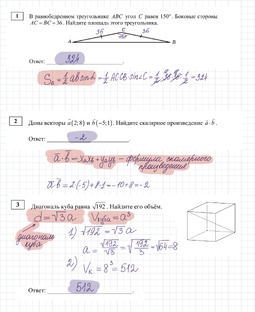 1 В равнобедренном треугольнике ABC угол C равен 150°. Боковые стороны
AC = BC = 36. Найдите площадь этого треугольника.
36 C 36
150°
A B
Ответ: 324
2 Даны векторы a(2;8) и b(-5;1). Найдите скалярное произведение a · b.
Ответ: -2
a·b = x₁x₂ + y₁y₂ - формула скалярного
произведения
a·b = 2·(-5) + 8·1 = -10 + 8 = -2
3 Диагональ куба равна √192. Найдите его объём.
d = √3 a Vкуба = a³
диагональ
куба
1) √192 = √3 a
a = √192/√3 = √(192/3) = √64 = 8
2) Vк = 8³ = 512
Ответ: 512